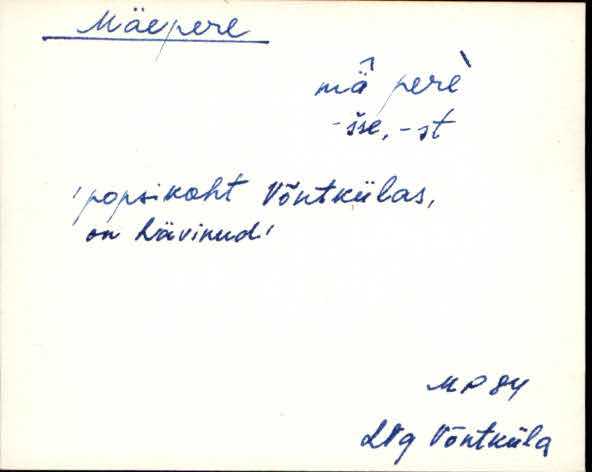 Mäepere
mä̂ perè
-šse, -st
'popsikoht Võntkülas,
on hävinud'
MP 84
LNg Võntküla